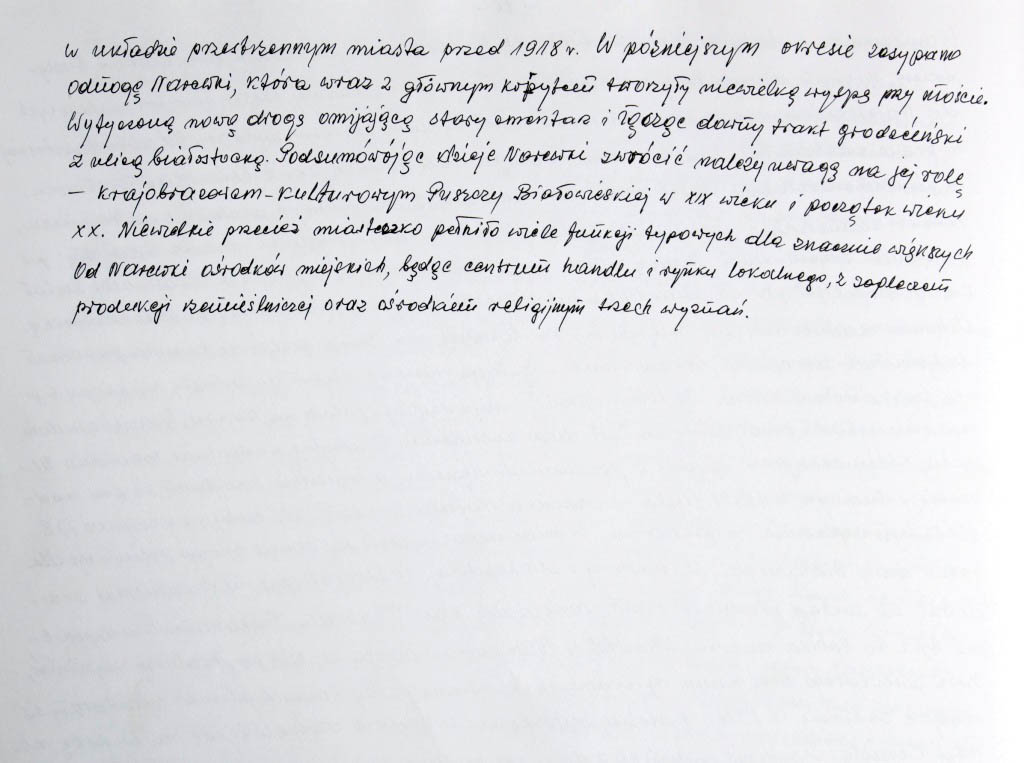 w układzie przestrzennym miasta przed 1918 r. W późniejszym okresie zasypano
odnogę Narewki, która wraz z głównym korytem tworzyły niewielką wyspę przy moście.
Wytyczoną nową drogą omijającą stary cmentarz i łącząc dawny trakt grodzieński
z ulicą białostocką. Podsumowując dzieje Narewki zwrócić należy uwagę na jej rolę
– krajobrazowem-kulturowym Puszczy Białowieskiej w XIX wieku i początek wieku
XX. Niewielkie przecież miasteczko pełniło wiele funkcji typowych dla znacznie większych
Od Narewki ośrodków miejskich, będąc centrum handlu i rynku lokalnego, z zapleczem
produkcji rzemieślniczej oraz ośrodkiem religijnym trzech wyznań.